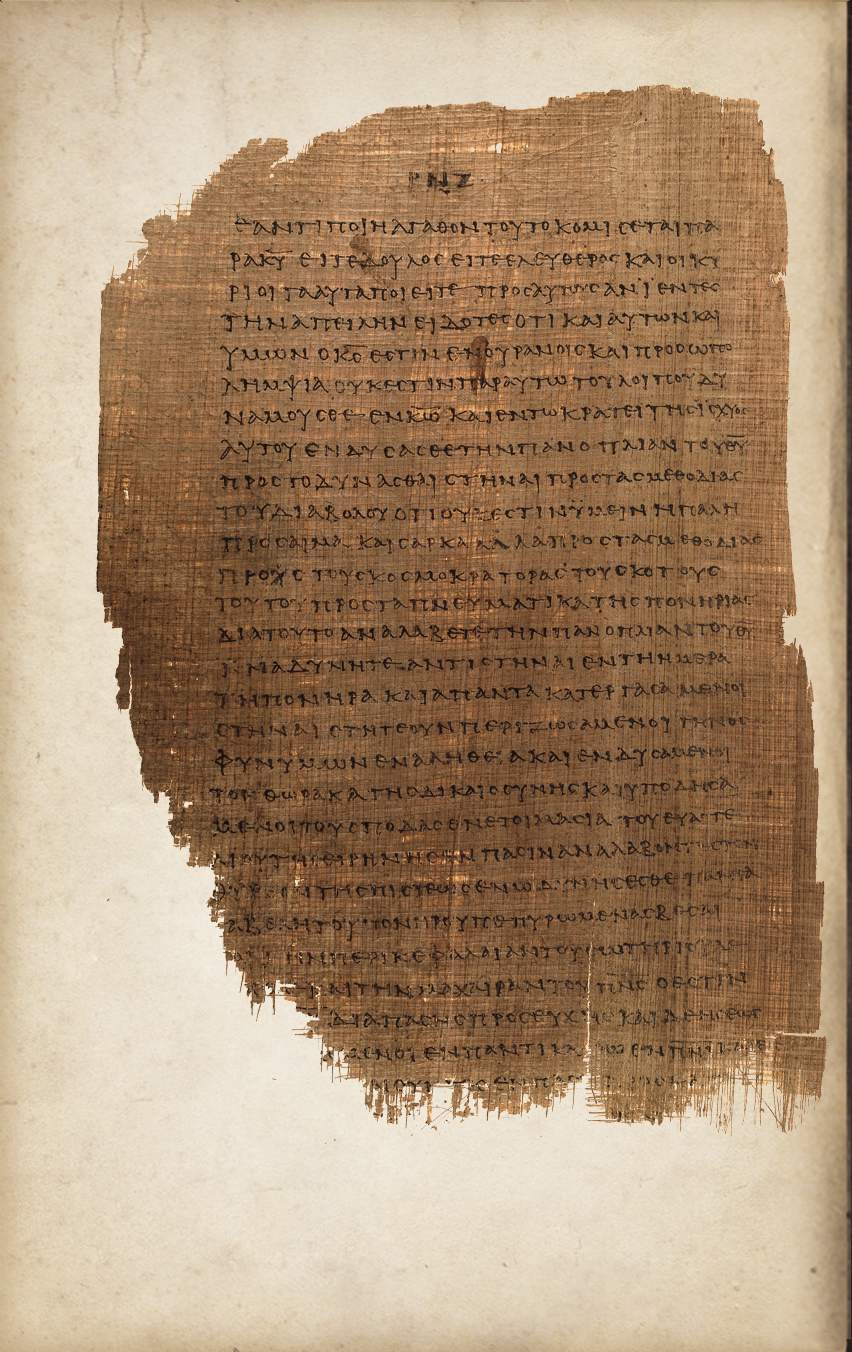 ΡΝΖ
ΕΑΝΤΙΠΟΙΗΑΓΑΘΟΝΤΟΥΤΟΚΟΜΙСΕΤΑΙΠΑ
ΡΑΚΥ ΕΙΤΕΔΟΥΛΟСΕΙΤΕΕΛΕΥΘΕΡΟСΚΑΙΟΙΚΥ
ΡΙΟΙΤΑΑΥΤΑΠΟΙΕΙΤΕ ΠΡΟСΑΥΤΟΥСΑΝΙΕΝΤΕС
ΤΗΝΑΠΕΙΛΗΝΕΙΔΟΤΕСΟΤΙΚΑΙΑΥΤΩΝΚΑΙ
ΥΜΩΝΟΚСΕСΤΙΝΕΝΟΥΡΑΝΟΙСΚΑΙΠΡΟСΩΠΟ
ΛΗΜΨΙΑΟΥΚΕСΤΙΝΠΑΡΑΥΤΩΤΟΥΛΟΙΠΟΥΔΥ
ΝΑΜΟΥСΘΕΕΝΚΩΚΑΙΕΝΤΩΚΡΑΤΕΙΤΗСΙСΧΥΟС
ΑΥΤΟΥΕΝΔΥСΑСΘΕΤΗΝΠΑΝΟΠΛΙΑΝΤΟΥΘΥ
ΠΡΟСΤΟΔΥΝΑСΘΑΙСΤΗΝΑΙΠΡΟСΤΑСΜΕΘΟΔΙΑС
ΤΟΥΔΙΑΒΟΛΟΥΟΤΙΟΥΚΕСΤΙΝΫΜΕΙΝΗΠΑΛΗ
ΠΡΟСΑΙΜΑ ΚΑΙСΑΡΚΑΑΛΛΑΠΡΟСΤΑСΜΕΘΟΔΙΑС
ΠΡΟС ΤΟΥСΚΟСΜΟΚΡΑΤΟΡΑСΤΟΥСΚΟΤΟΥС
ΤΟΥΤΟΥΠΡΟСΤΑΠΝΕΥΜΑΤΙΚΑΤΗСΠΟΝΗΡΙΑС
ΔΙΑΤΟΥΤΟΑΝΑΛΑΒΕΤΕΤΗΝΠΑΝΟΠΛΙΑΝΤΟΥΘΥ
ΙΝΑΔΥΝΗΤΕΑΝΤΙСΤΗΝΑΙΕΝΤΗΗΜΕΡΑ
ΤΗΠΟΝΗΡΑΚΑΙΑΠΑΝΤΑΚΑΤΕΡΓΑСΑΜΕΝΟΙ
СΤΗΝΑΙСΤΗΤΕΟΥΝΠΕΡΙΖΩСΑΜΕΝΟΙΤΗΝΟС
ΦΥΝΥΜΩΝΕΝΑΛΗΘΕΙΑΚΑΙΕΝΔΥСΑΜΕΝΟΙ
ΤΟΝΘΩΡΑΚΑΤΗСΔΙΚΑΙΟСΥΝΗСΚΑΙΥΠΟΔΗСΑ
ΜΕΝΟΙΤΟΥСΠΟΔΑСΕΝΕΤΟΙΜΑСΙΑΤΟΥΕΥΑΓΓΕ
ΛΙΟΥΤΗСΕΙΡΗΝΗСΕΝΠΑСΙΝΑΝΑΛΑΒΟΝΤΕСΤΟΝ
ΘΥΡΕΟΝΤΗСΠΙСΤΕΩСΕΝΩΔΥΝΗСΕСΘΕΠΑΝΤΑ
ΤΑΒΕΛΗΤΟΥΠΟΝΗΡΟΥΠΕΠΥΡΩΜΕΝΑСΒΕСΑΙ
ΗΝΠΕΡΙΚΕΦΑΛΑΙΑΝΤΟΥСΩΤΗΡΙΟΥ
ΑΙΤΗΝΜΑΧΑΙΡΑΝΤΟΥΠΝСΟΕСΤΙΝ
ΔΙΑΠΑСΗСΠΡΟСΕΥΧΗСΚΑΙΔΕΗСΕΩС
ΜΕΝΟΙΕΝΠΑΝΤΙΚΑΙΡΩΕΝΠΝΙΚΑΙΕ